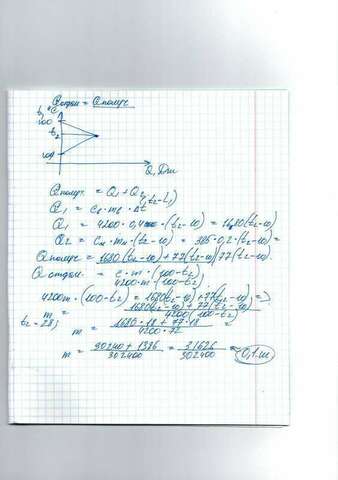 Qотдан = Qполуч
t, °C
100
t₂
Q, Дж
Qполуч. = Q₁ + Q₂
(t₂-t₁)
Q₁ = Cв · mв · Δt
Q₁ = 4200 · 0,4 · (t₂-10) = 1680(t₂-10)
Q₂ = Cм · mм · (t₂-10) = 385 · 0,2 · (t₂-10) =
Qполуч = 1680(t₂-10) + 77(t₂-10) 77(t₂-10).
Qотдан. = c · m · (100-t₂)
4200·m·(100-t₂)
4200m · (100-t₂) = 1680(t₂-10) + 77(t₂-10) =>
m = 1680(t₂-10) + 77(t₂-10) / 4200(100-t₂)
t₂ = 28;
m = 1680 · 18 + 77 · 18 / 4200 · 72 =
m = 30240 + 1386 / 302400 = 31626 / 302400 = 0,1 кг